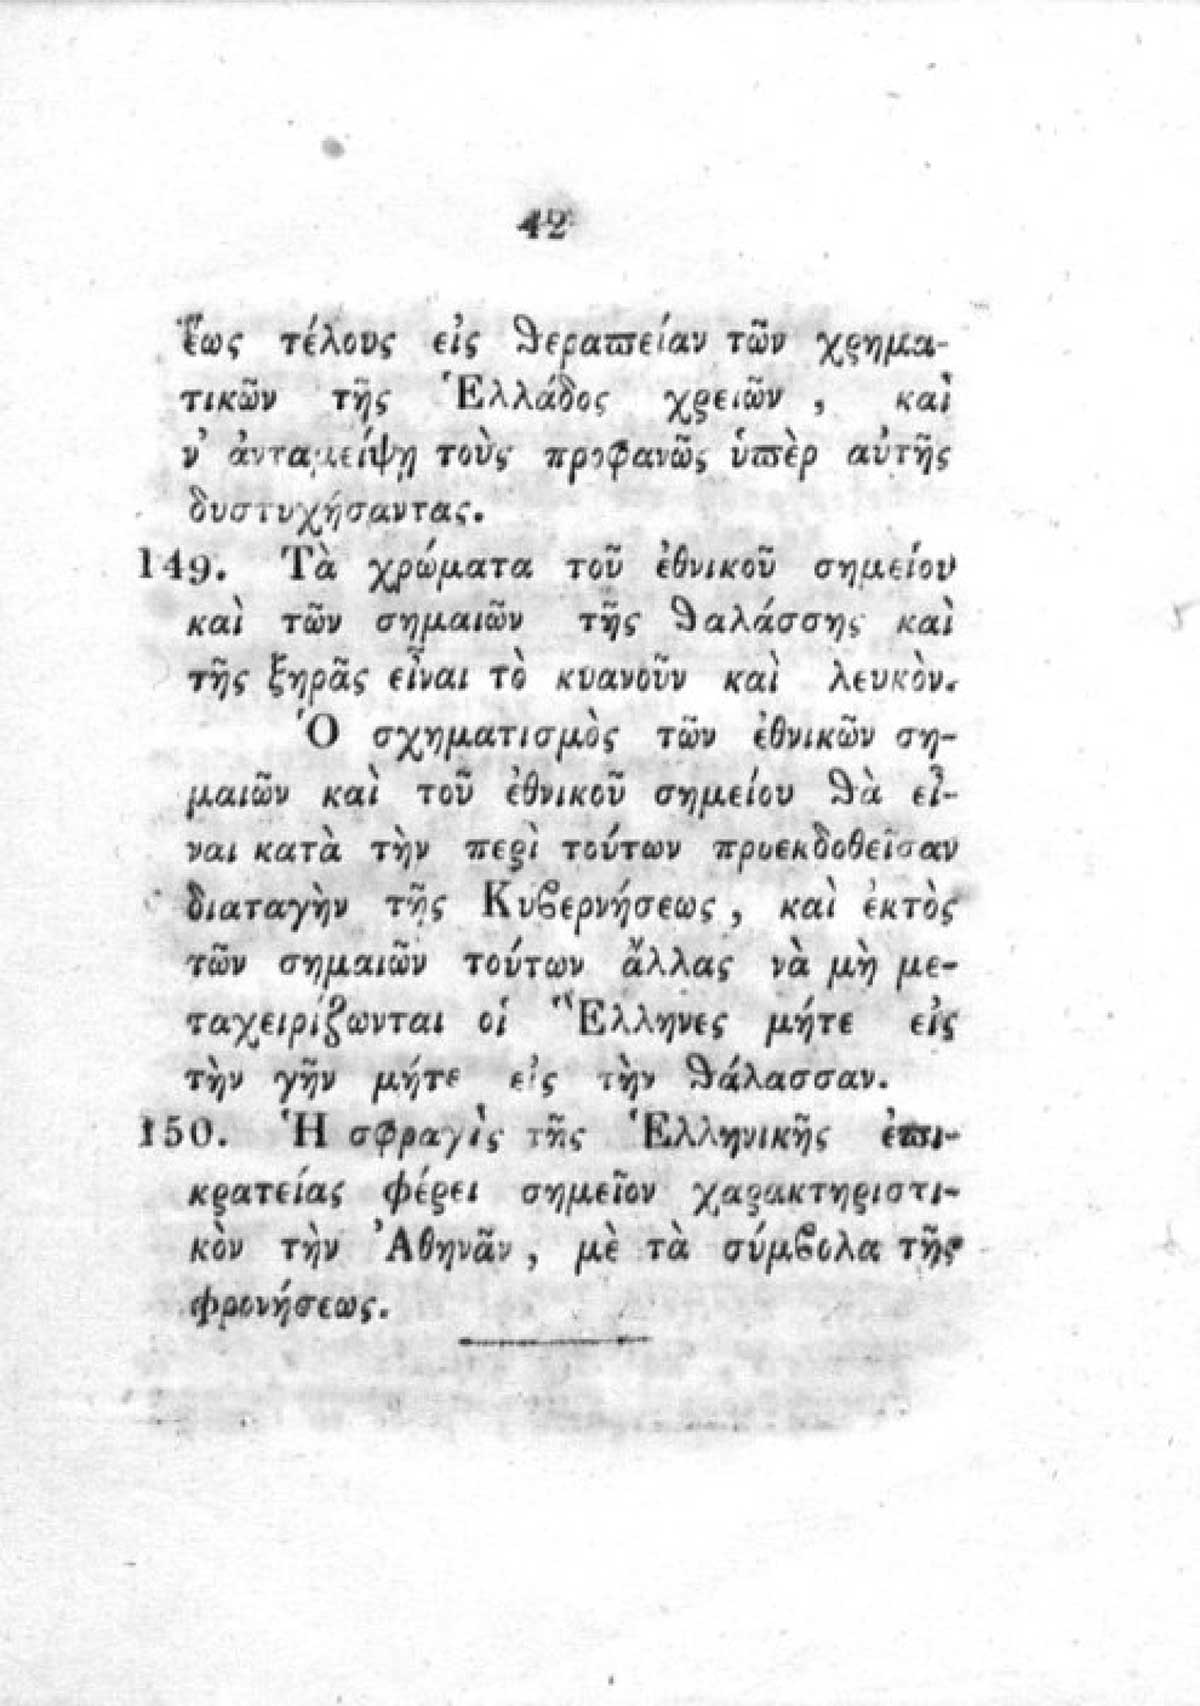 42
ἕως τέλους εἰς θεραπείαν τῶν χρημα-
τικῶν τῆς Ἑλλάδος χρειῶν, καὶ
ν' ἀνταμείψῃ τοὺς προφανῶς ὑπὲρ αὐτῆς
δυστυχήσαντας.
149. Τὰ χρώματα τοῦ ἐθνικοῦ σημείου
καὶ τῶν σημαιῶν τῆς θαλάσσης καὶ
τῆς ξηρᾶς εἶναι τὸ κυανοῦν καὶ λευκὸν.
Ὁ σχηματισμὸς τῶν ἐθνικῶν ση-
μαιῶν καὶ τοῦ ἐθνικοῦ σημείου θὰ εἶ-
ναι κατὰ τὴν περὶ τούτων προεκδοθεῖσαν
διαταγὴν τῆς Κυβερνήσεως, καὶ ἐκτὸς
τῶν σημαιῶν τούτων ἄλλας νὰ μὴ με-
ταχειρίζωνται οἱ Ἕλληνες μήτε εἰς
τὴν γῆν μήτε εἰς τὴν θάλασσαν.
150. Ἡ σφραγὶς τῆς Ἑλληνικῆς ἐπι-
κρατείας φέρει σημεῖον χαρακτηριστι-
κὸν τὴν Ἀθηνᾶν, μὲ τὰ σύμβολα τῆς
φρονήσεως.